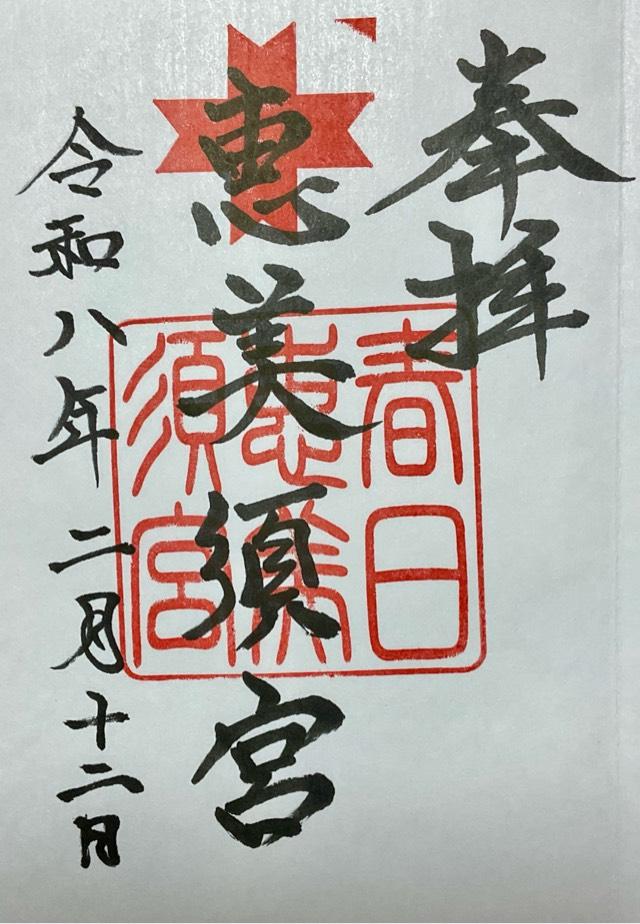 奉拝
春日
恵美
須宮
恵美須宮
令和八年二月十二日